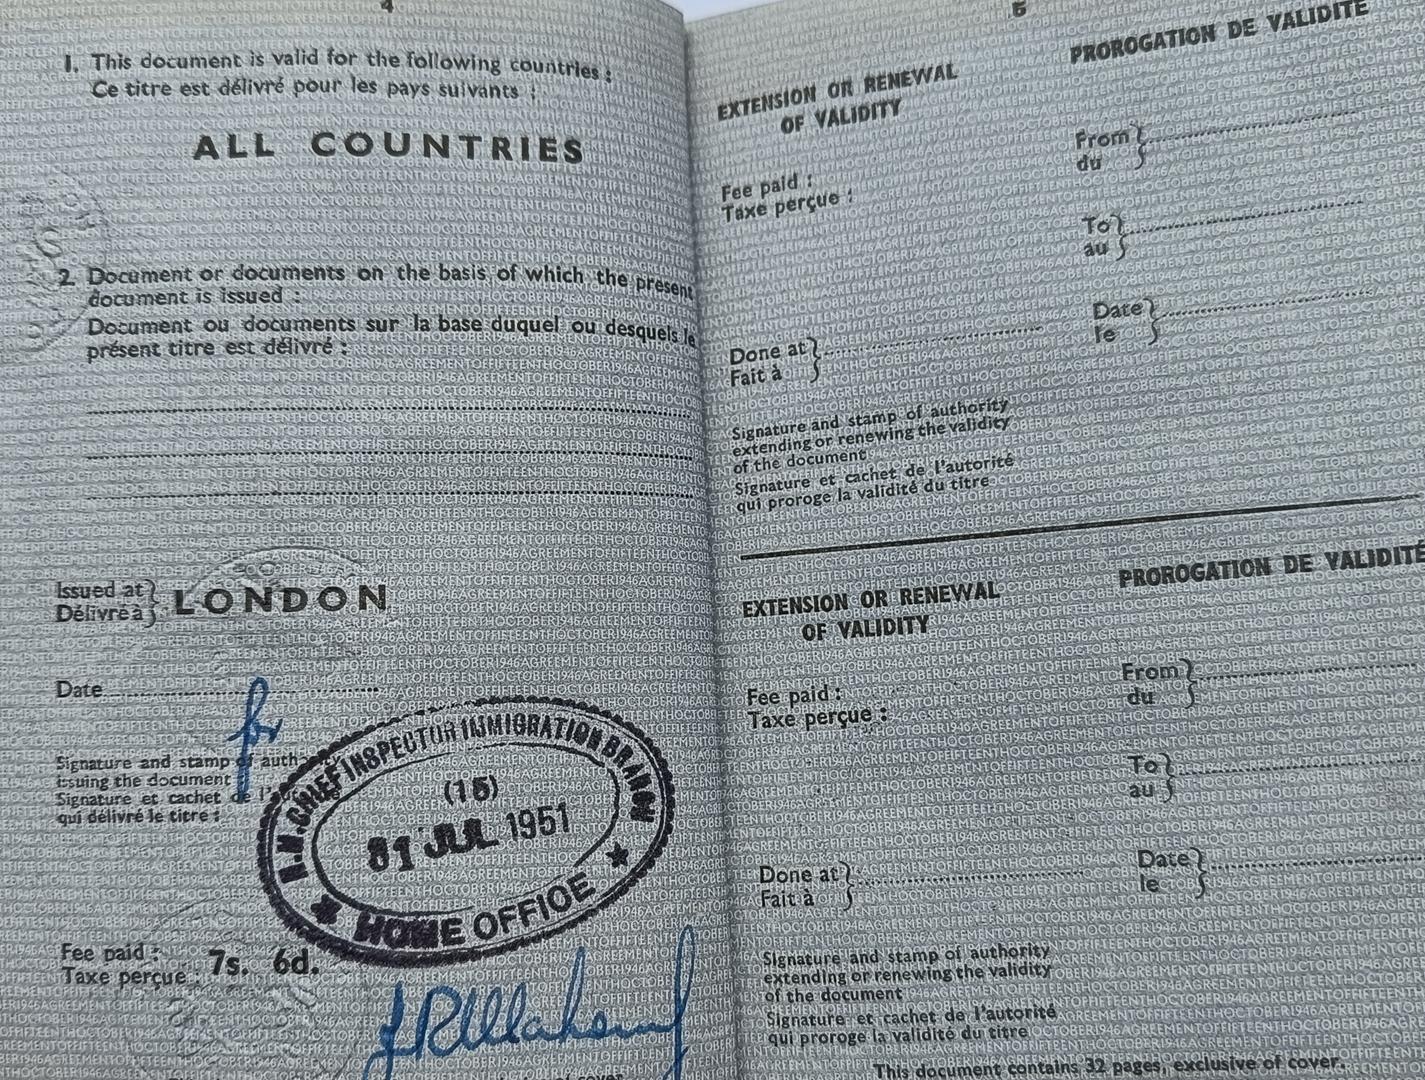 4
1. This document is valid for the following countries :
Ce titre est délivré pour les pays suivants :
ALL COUNTRIES
2. Document or documents on the basis of which the present
document is issued :
Document ou documents sur la base duquel ou desquels le
présent titre est délivré :
Issued at
Délivré à
LONDON
Date
for
Signature and stamp of auth
issuing the document
Signature et cachet de l'
qui délivre le titre :
H.M. CHIEF INSPECTOR IMMIGRATION BRANCH
(15)
31 JUL 1951
HOME OFFICE
Fee paid :
Taxe perçue
7s. 6d.
5
EXTENSION OR RENEWAL
OF VALIDITY
PROROGATION DE VALIDITÉ
Fee paid :
Taxe perçue :
From
du
To
au
Done at
Fait à
Date
le
Signature and stamp of authority
extending or renewing the validity
of the document
Signature et cachet de l'autorité
qui proroge la validité du titre
EXTENSION OR RENEWAL
OF VALIDITY
PROROGATION DE VALIDITÉ
Fee paid :
Taxe perçue :
From
du
To
au
Done at
Fait à
Date
le
Signature and stamp of authority
extending or renewing the validity
of the document
Signature et cachet de l'autorité
qui proroge la validité du titre
This document contains 32 pages, exclusive of cover.
AGREEMENTOFFIFTEENTHOCTOBER1946